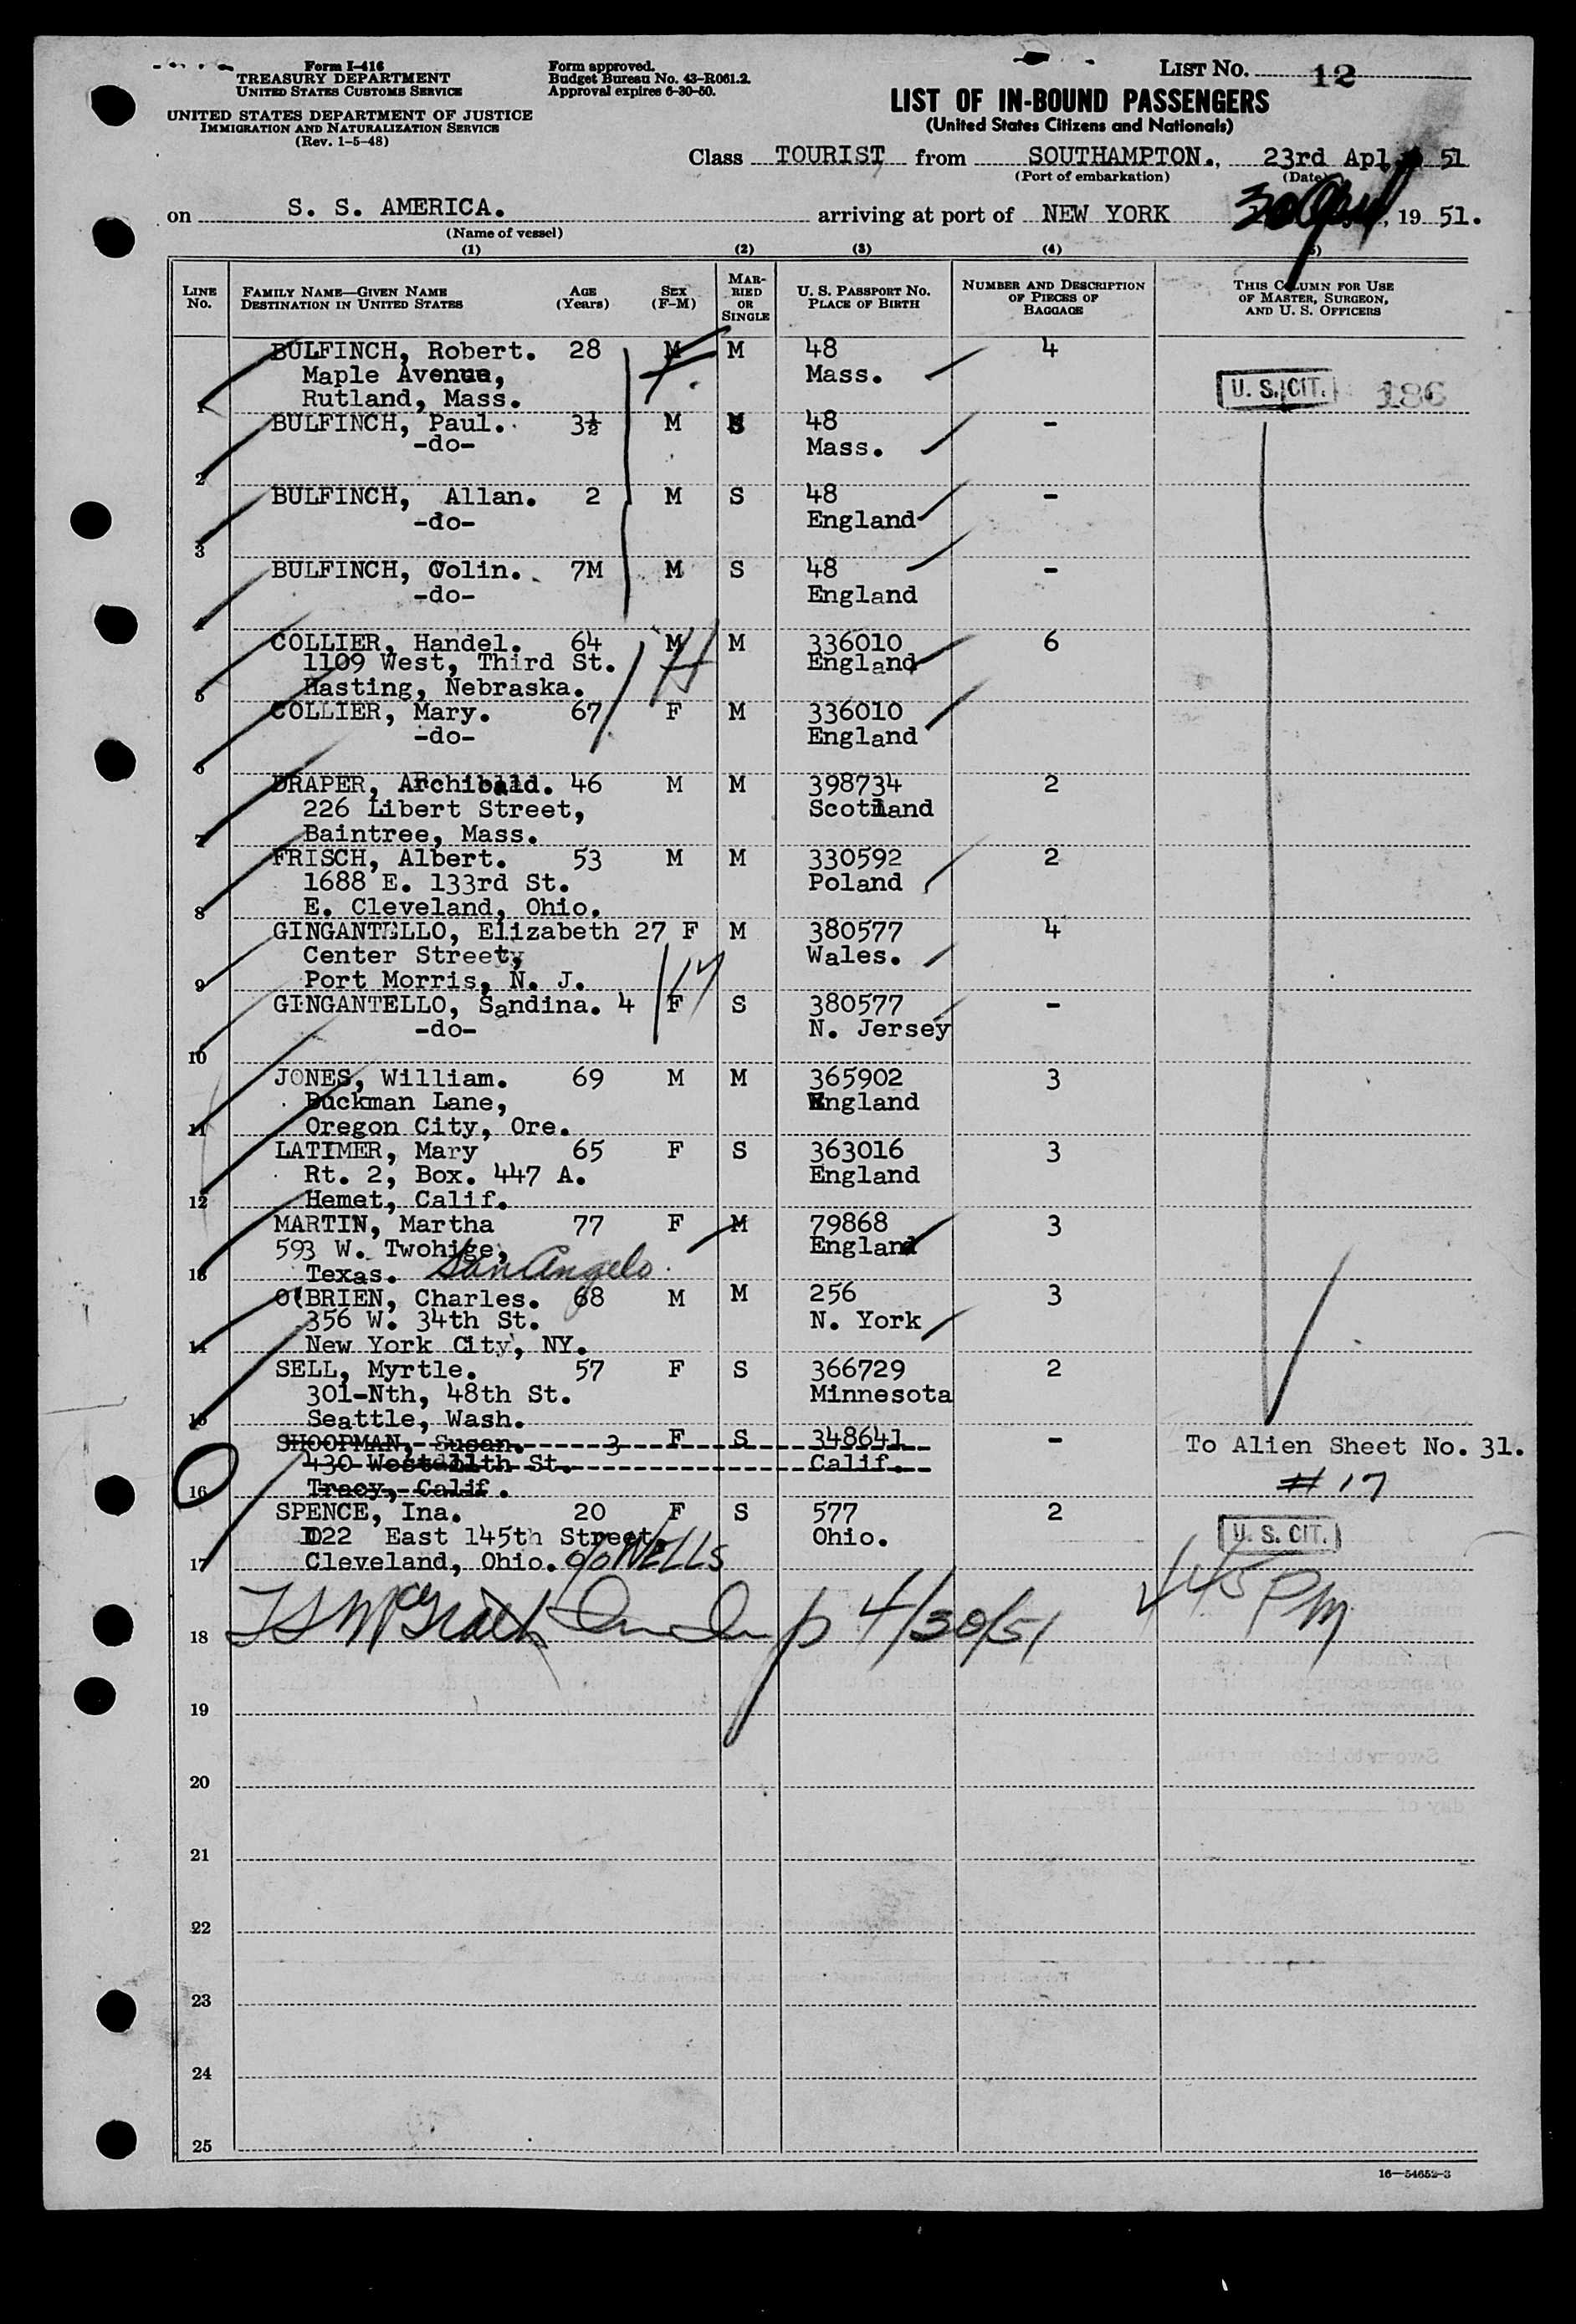 Form I-416
TREASURY DEPARTMENT
UNITED STATES CUSTOMS SERVICE
UNITED STATES DEPARTMENT OF JUSTICE
IMMIGRATION AND NATURALIZATION SERVICE
(Rev. 1-5-48)
Form approved.
Budget Bureau No. 43-R061.2.
Approval expires 6-30-50.
LIST NO. 12
LIST OF IN-BOUND PASSENGERS
(United States Citizens and Nationals)
Class TOURIST from SOUTHAMPTON., 23rd Apl, 51
(Port of embarkation) (Date)
on S. S. AMERICA. arriving at port of NEW YORK 30 April, 19 51.
(Name of vessel)
(1) (2) (3) (4) (5)
LINE No. FAMILY NAME—GIVEN NAME DESTINATION IN UNITED STATES AGE (Years) SEX (F-M) MARRIED OR SINGLE U. S. PASSPORT NO. PLACE OF BIRTH NUMBER AND DESCRIPTION OF PIECES OF BAGGAGE THIS COLUMN FOR USE OF MASTER, SURGEON, AND U. S. OFFICERS
BULFINCH, Robert. 28 M M 48 4
Maple Avenue, Mass.
1 Rutland, Mass. U. S. CIT. 186
BULFINCH, Paul. 3½ M S 48 -
-do- Mass.
2
BULFINCH, Allan. 2 M S 48 -
-do- England
3
BULFINCH, Colin. 7M M S 48 -
-do- England
4
COLLIER, Handel. 64 M M 336010 6
1109 West, Third St. England
5 Hasting, Nebraska.
COLLIER, Mary. 67 F M 336010
-do- England
6
DRAPER, Archibald. 46 M M 398734 2
226 Libert Street, Scotland
7 Baintree, Mass.
FRISCH, Albert. 53 M M 330592 2
1688 E. 133rd St. Poland
8 E. Cleveland, Ohio.
GINGANTELLO, Elizabeth 27 F M 380577 4
Center Street, Wales.
9 Port Morris, N. J.
GINGANTELLO, Sandina. 4 F S 380577 -
-do- N. Jersey
10
JONES, William. 69 M M 365902 3
Buckman Lane, England
11 Oregon City, Ore.
LATIMER, Mary 65 F S 363016 3
Rt. 2, Box. 447 A. England
12 Hemet, Calif.
MARTIN, Martha 77 F M 79868 3
593 W. Twohige, England
13 Texas. San Angelo
O'BRIEN, Charles. 68 M M 256 3
356 W. 34th St. N. York
14 New York City, NY.
SELL, Myrtle. 57 F S 366729 2
301-Nth, 48th St. Minnesota
15 Seattle, Wash.
SHOOPMAN, Susan. 3 F S 348641 - To Alien Sheet No. 31.
430 West 11th St. Calif.
16 Tracy, Calif. # 17
SPENCE, Ina. 20 F S 577 2
1022 East 145th Street Ohio. U. S. CIT.
17 Cleveland, Ohio. c/o WELLS
18 4/30/51 PM
19
20
21
22
23
24
25
16—54652-3